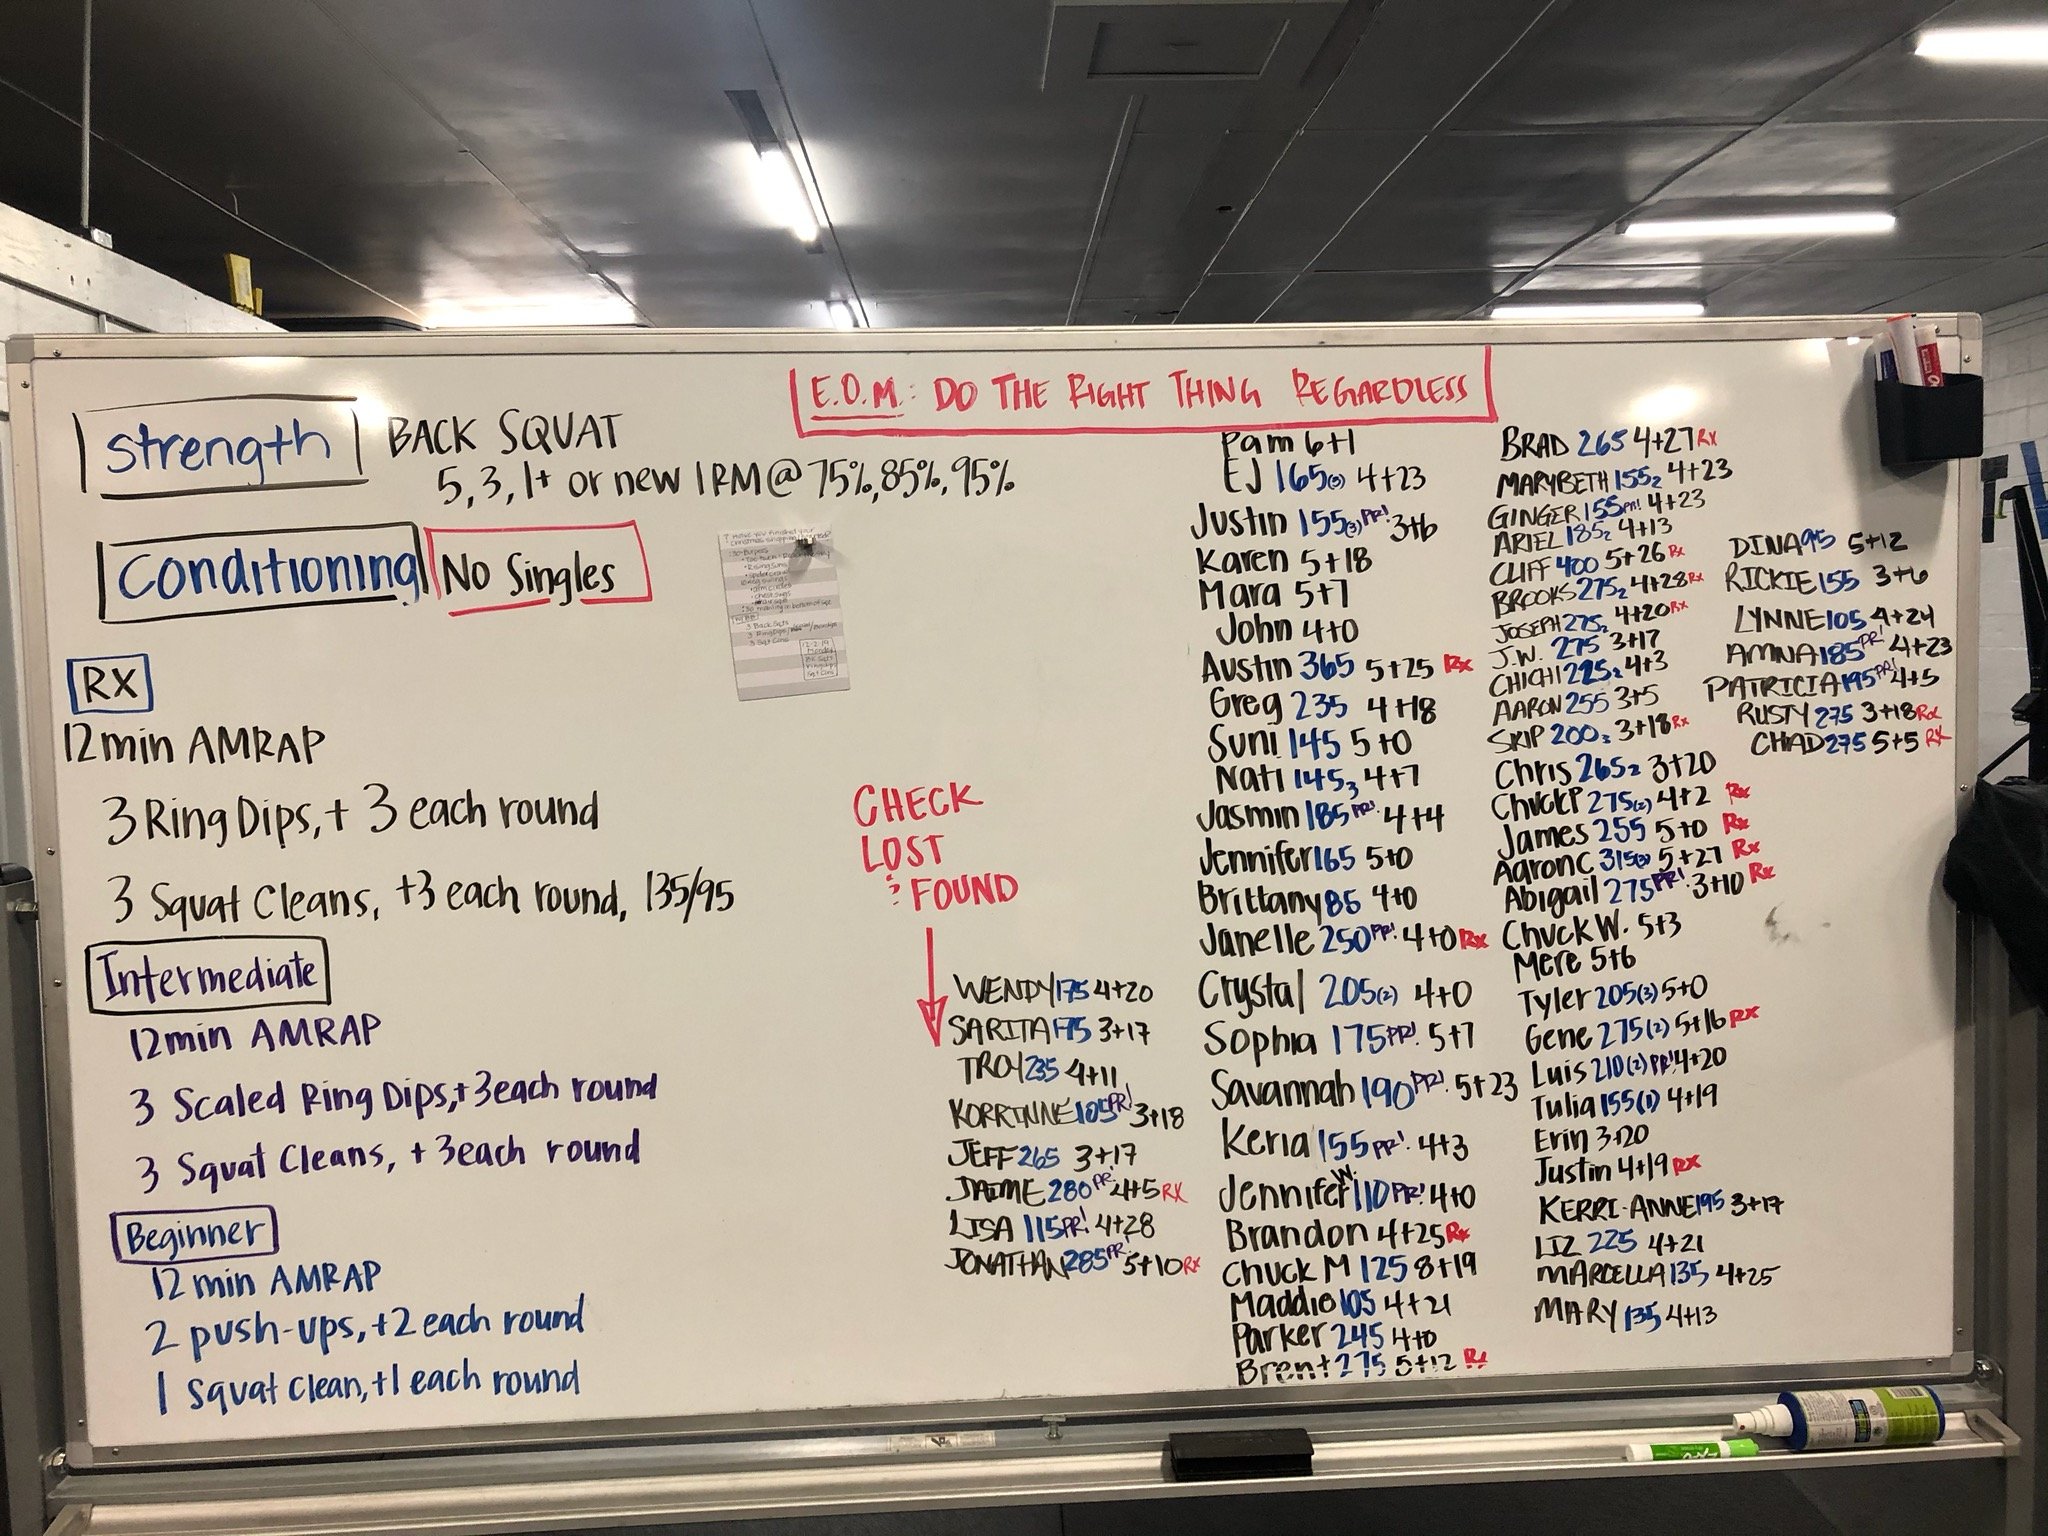 E.O.M.: DO THE RIGHT THING REGARDLESS
Strength
BACK SQUAT
5, 3, 1+ or new 1RM @ 75%, 85%, 95%
Conditioning
No Singles
RX
12min AMRAP
3 Ring Dips, + 3 each round
3 Squat Cleans, +3 each round, 135/95
Intermediate
12min AMRAP
3 Scaled Ring Dips, +3 each round
3 Squat Cleans, +3 each round
Beginner
12 min AMRAP
2 push-ups, +2 each round
1 squat clean, +1 each round
CHECK
LOST
& FOUND
WENDY 175 4+20
SARITA 175 3+17
TROY 235 4+11
KORRINNE 105 PR! 3+18
JEFF 265 3+17
JAIME 280 PR! 4+5 RX
LISA 115 PR! 4+28
JONATHAN 285 PR! 5+10 RX
Pam 6+1
EJ 165(3) 4+23
Justin 155(3) PR! 3+6
Karen 5+18
Mara 5+7
John 4+0
Austin 365 5+25 Rx
Greg 235 4+18
Suni 145 5+0
Nati 145 3 4+7
Jasmin 185 PR! 4+4
Jennifer 165 5+0
Brittany 85 4+0
Janelle 250 PR! 4+0 Rx
Crystal 205(2) 4+0
Sophia 175 PR! 5+7
Savannah 190 PR! 5+23
Keria 155 PR! 4+3
Jennifer W. 110 PR! 4+0
Brandon 4+25 Rx
Chuck M 125 8+19
Maddie 105 4+21
Parker 245 4+0
Brent 275 5+12 Rx
BRAD 265 4+27 Rx
MARYBETH 155 2 4+23
GINGER 155 PR! 4+23
ARIEL 185 2 4+13
CLIFF 400 5+26 Rx
BROOKS 275 2 4+28 Rx
JOSEPH 275 2 4+20 Rx
J.W. 275 3+17
CHICHI 225 2 4+3
AARON 255 3+5
SKIP 200 3 3+18 Rx
Chris 265 2 3+20
Chuck P 275(2) 4+2 Rx
James 255 5+0 Rx
Aaron C 315(3) 5+27 Rx
Abigail 275 PR! 3+10 Rx
Chuck W. 5+3
Mere 5+6
Tyler 205(3) 5+0
Gene 275(2) 5+16 Rx
Luis 210(2) PR! 4+20
Tulia 155(1) 4+19
Erin 3+20
Justin 4+19 Rx
KERRI-ANNE 195 3+17
LIZ 225 4+21
MARCELLA 135 4+25
MARY 135 4+13
DINA 95 5+12
RICKIE 155 3+6
LYNNE 105 4+24
AMNA 185 PR! 4+23
PATRICIA 195 PR! 4+5
RUSTY 275 3+18 Rx
CHAD 275 5+5 RX